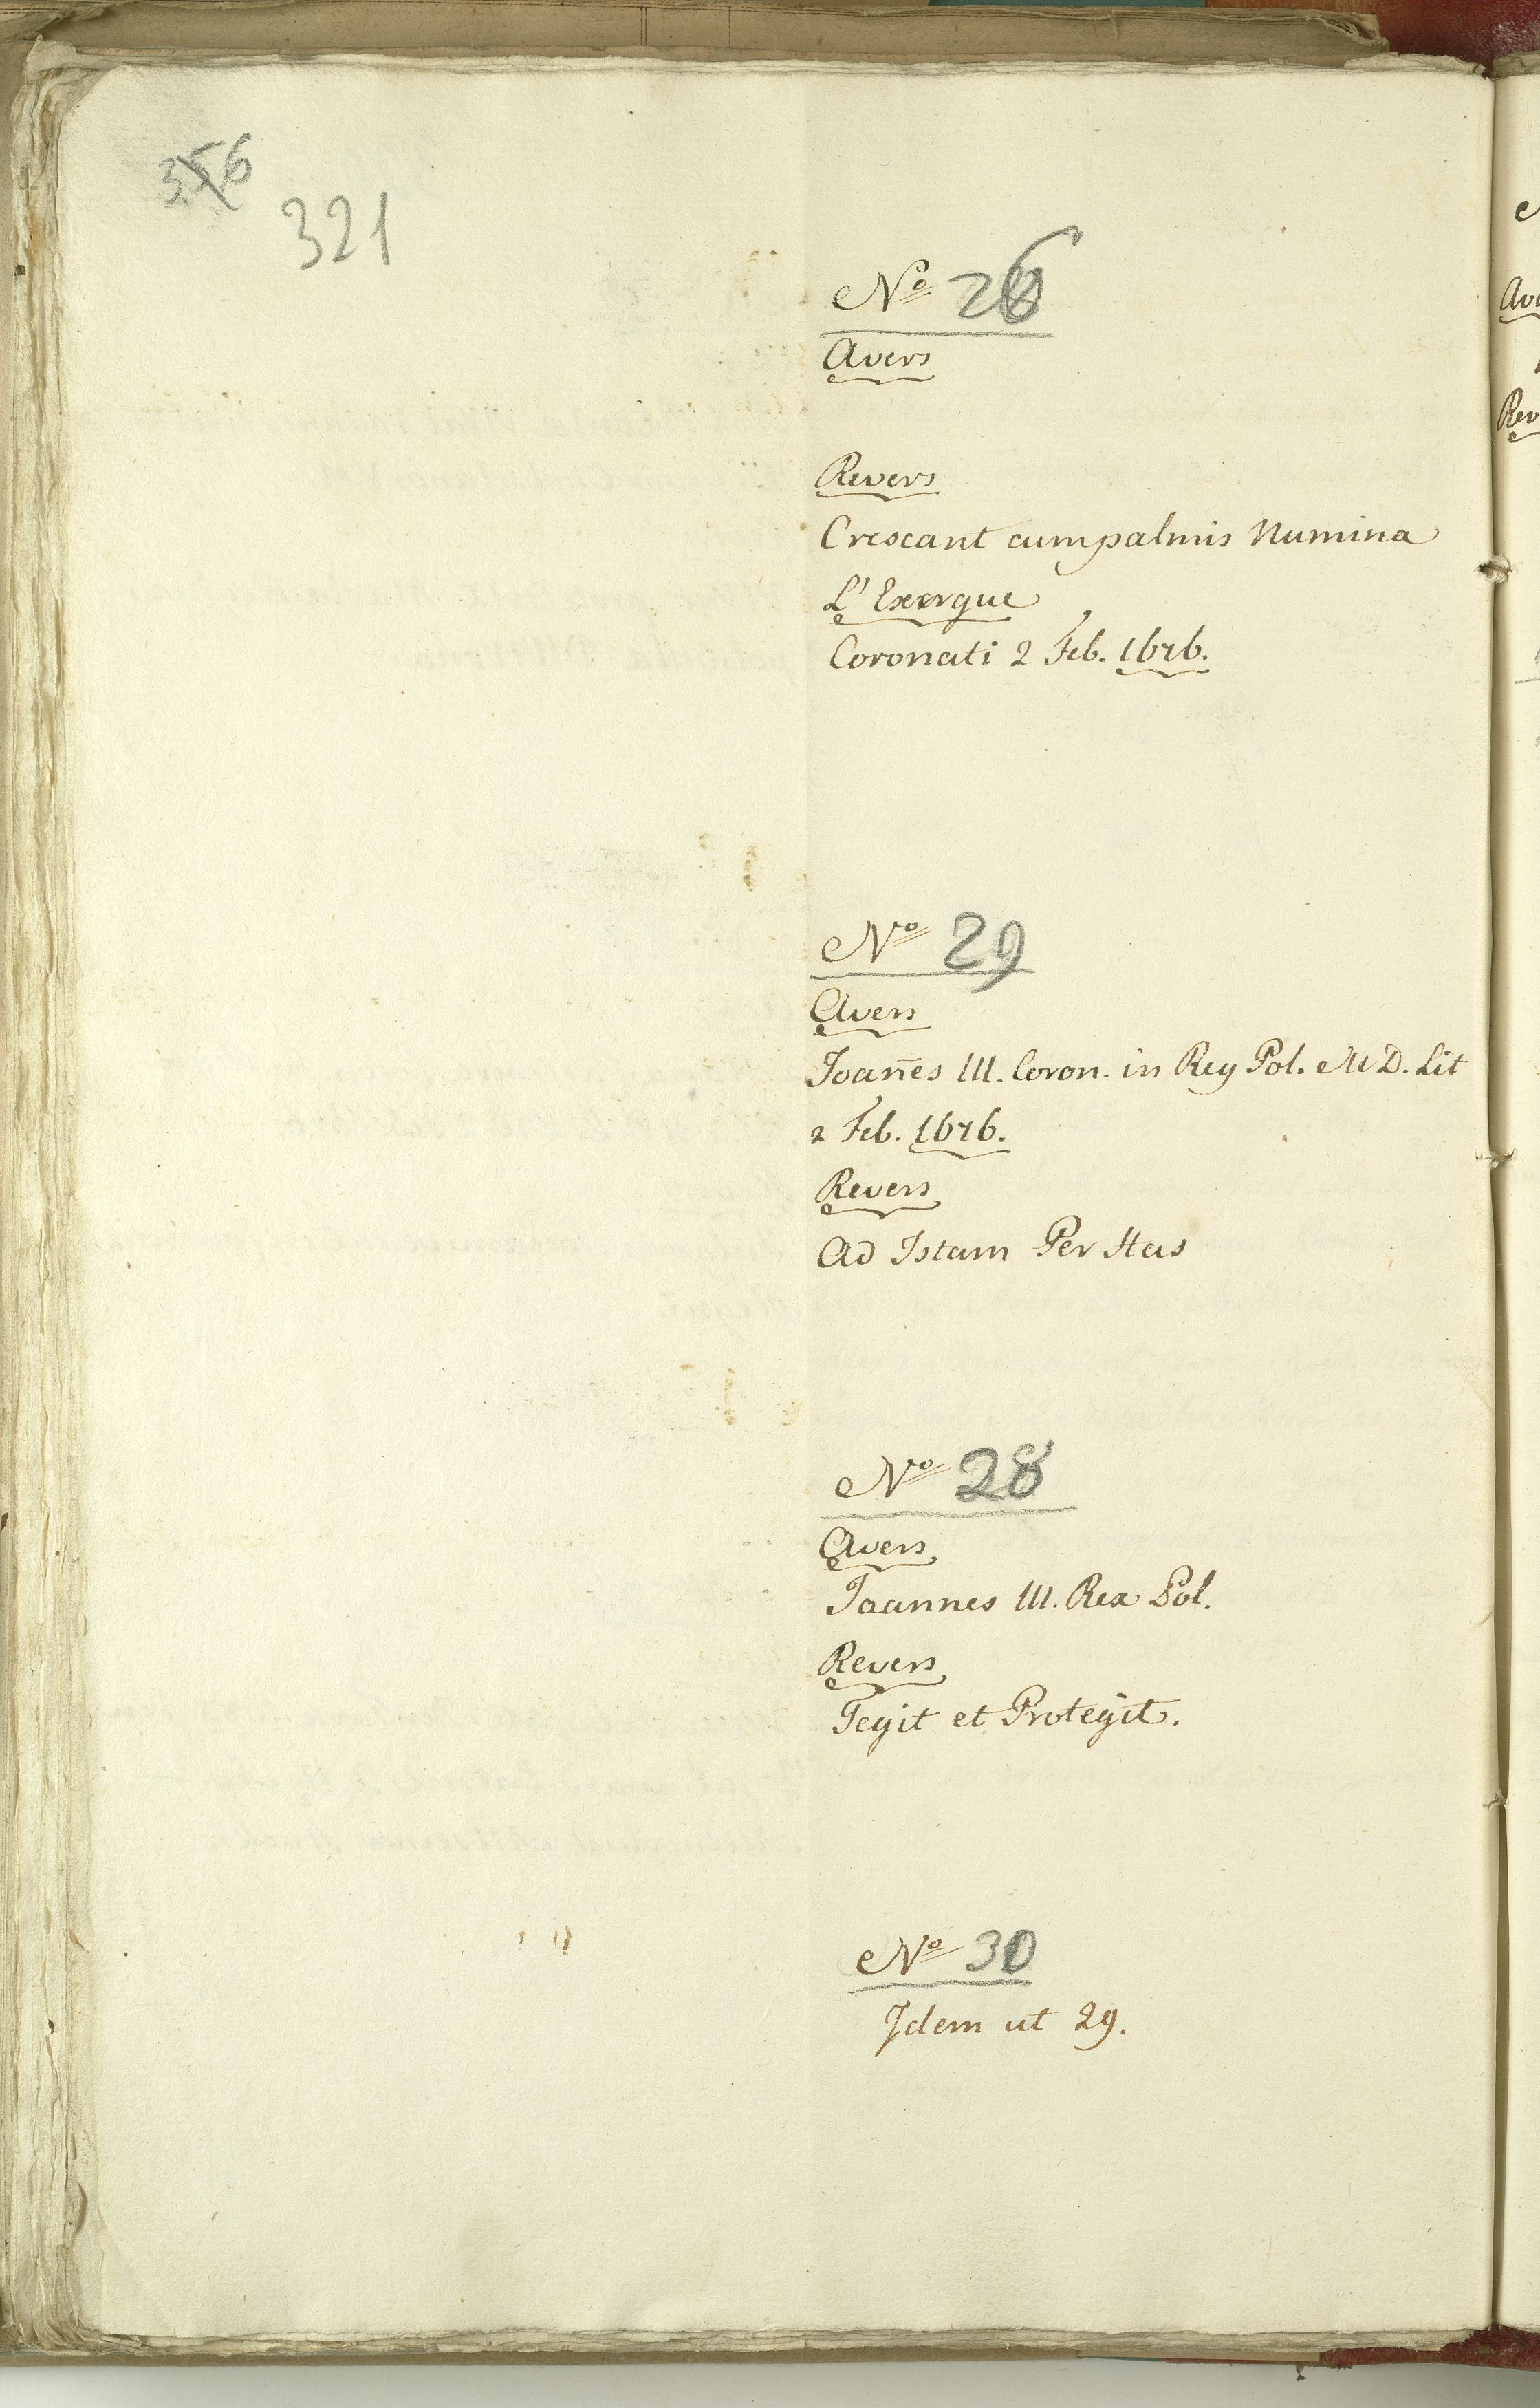 356
321
No 26
Avers
Revers
Crescant cum palmis Numina
L'Exergue
Coronati 2 Feb. 1676.
No 29
Avers
Joan̄es III. Coron. in Reg Pol. M D. Lit
2 Feb. 1676.
Revers
Ad Istam Per Has
No 28
Avers
Joannes III. Rex Pol.
Revers
Tegit et Protegit.
No 30
Jdem ut 29.